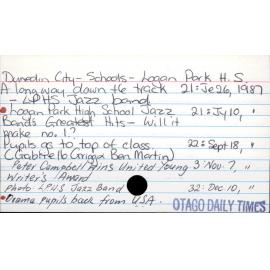 Dunedin City - Schools - Logan Park H.S.
A long way down the track 21: Je 26, 1987
- LPHS Jazz band
Logan Park High School Jazz 21: Jy 10, "
Band's Greatest Hits - Will it
make no. 1?
Pupils go to top of class 22: Sept 18, "
(Gabrielle Grigg Ben Martin)
Peter Campbell Wins United Young 3 Nov. 7, "
Writer's Award
Photo LPHS Jazz Band 32: Dec 10, "
Drama pupils back from USA.
OTAGO DAILY TIMES